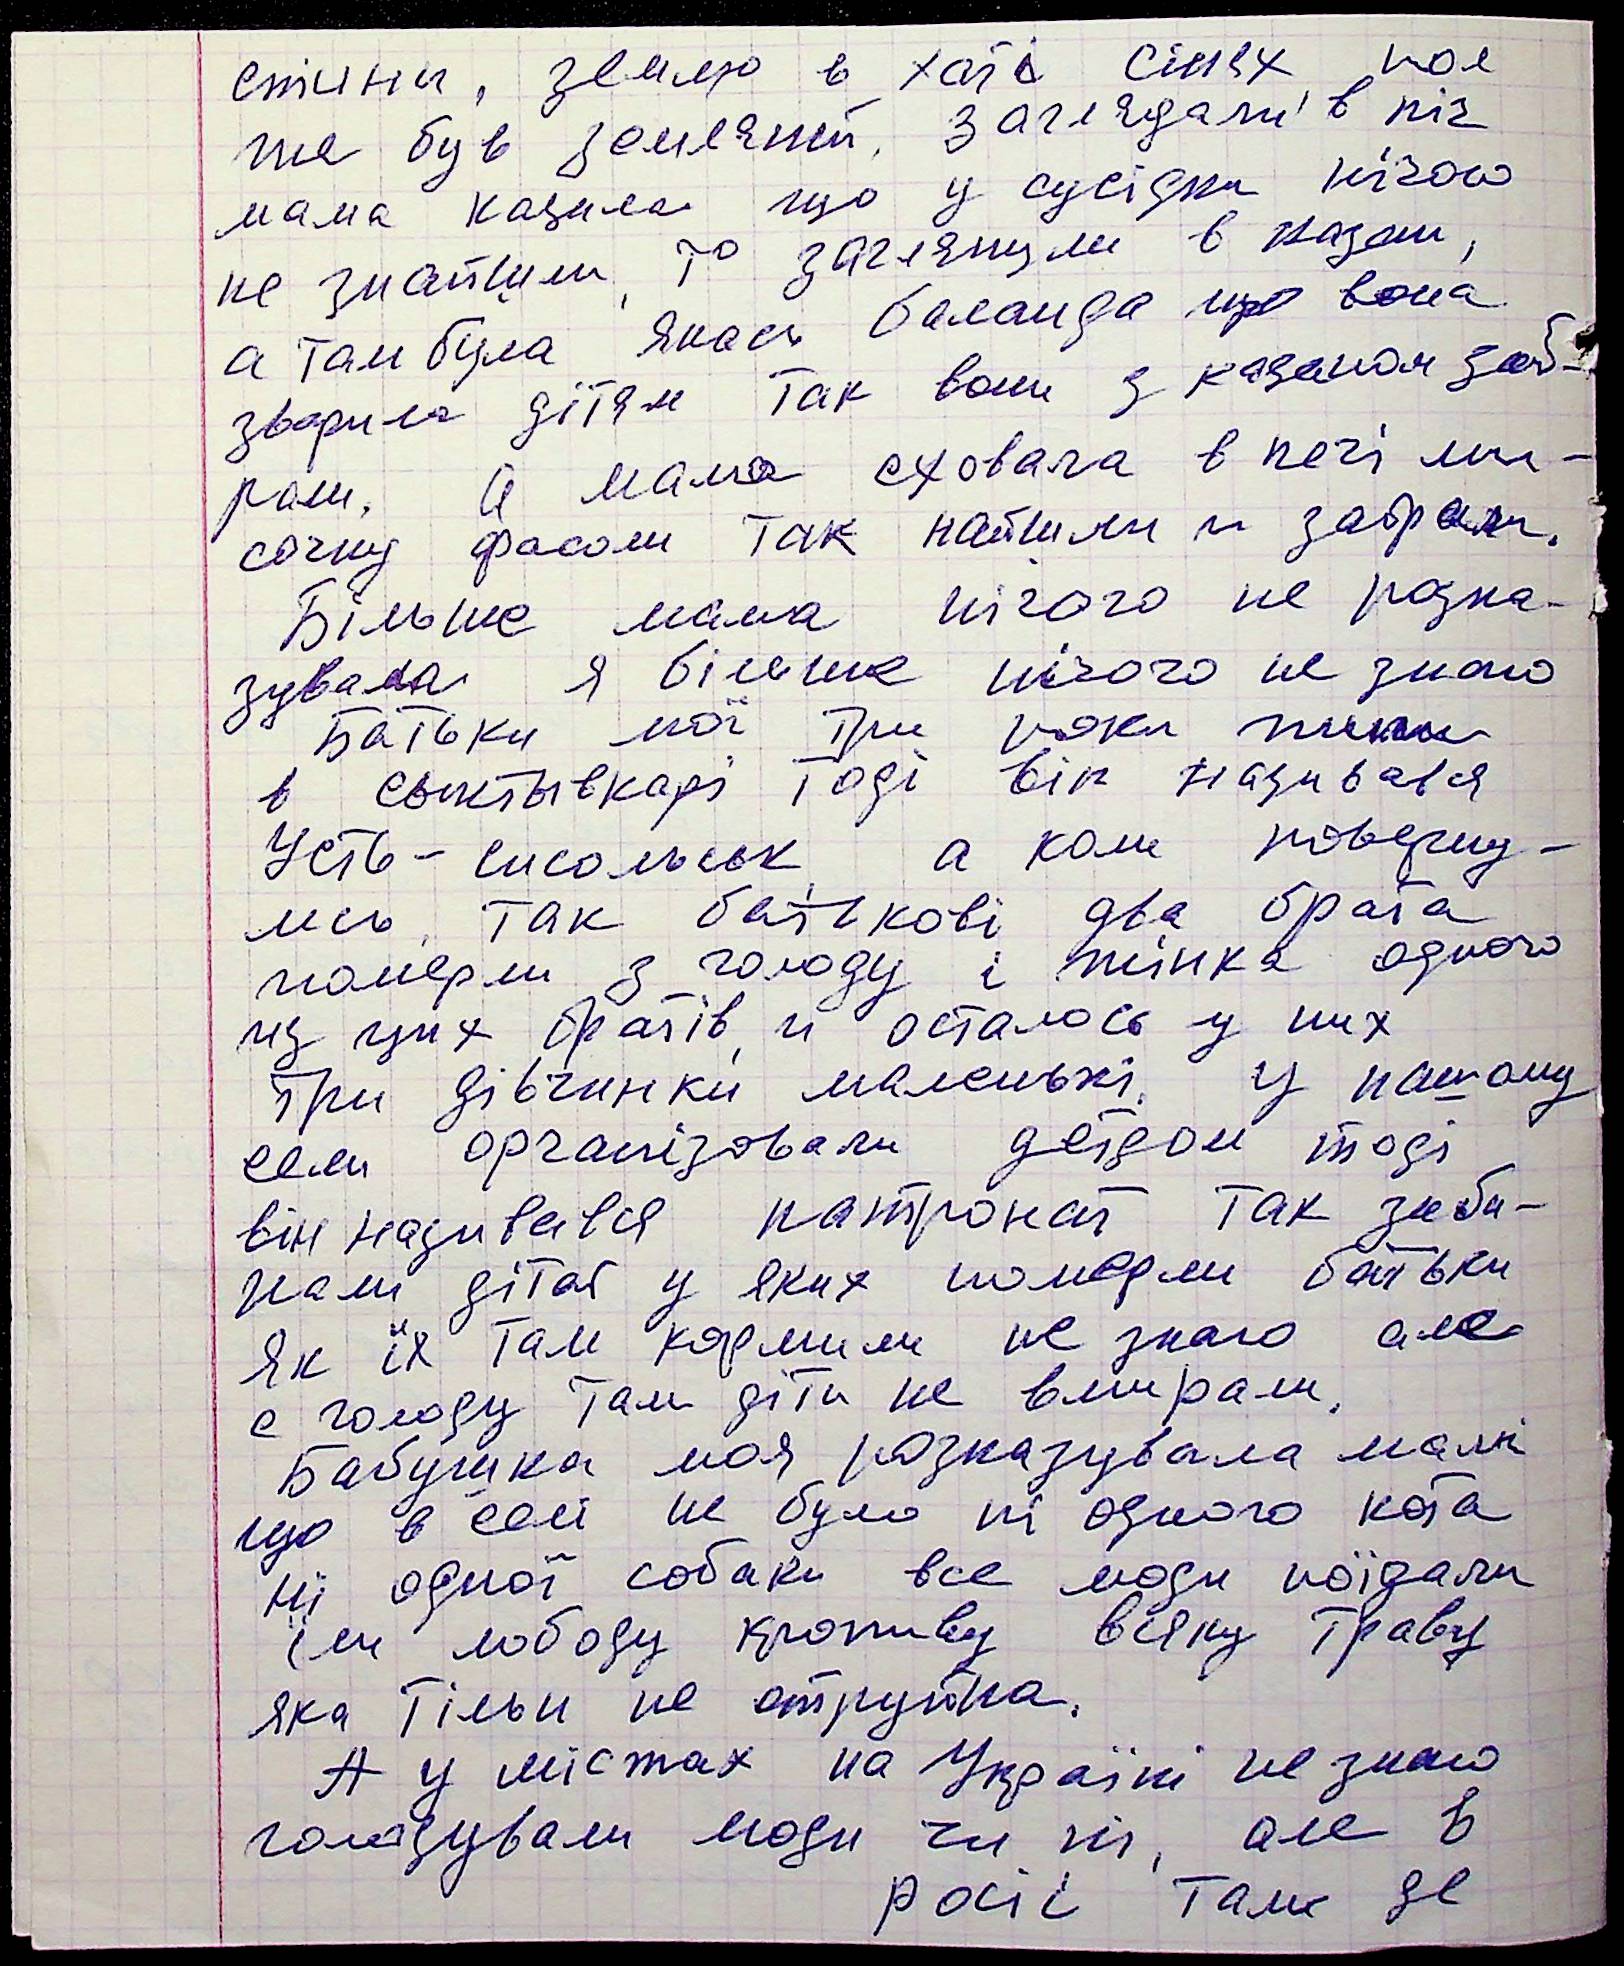 стини, землю в хаті сінях пол
же був земляний, заглядали в піч
мама казала що у сусідки нічого
не знайшли, то заглянули в казан,
а там була якась баланда що вона
зварила дітям так вони з казаном заб-
рали. А мама сховала в печі ми-
сочку фасоли так найшли и забрали.
Більше мама нічого не розка-
зувала я більше нічого не знаю
Батьки мої три роки жили
в сыктывкарі тоді він називався
Усть-сисольськ, а коли поверну-
лись, так батькові два брата
померли з голоду і жінка одного
из цих братів, и осталось у них
три дівчинки маленькі. У нашому
сели організовали детдом тоді
він називався патронат так заби-
рали дітей у яких померли батьки
як їх там кормили не знаю але
с голоду там діти не вмирали.
Бабушка моя розказувала мамі
що в селі не було ні одного кота
ні одної собаки все люди поїдали
їли лободу кропиву всяку траву
яка тільи не отруйна.
А у містах на Україні не знаю
голодували люди чи ні, але в
росіі там де